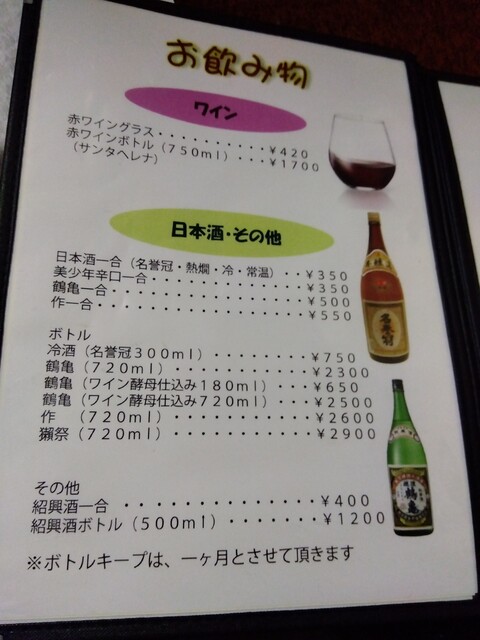 お飲み物
ワイン
赤ワイングラス・・・・・・・・・・¥420
赤ワインボトル（750ml）・・・¥1700
（サンタヘレナ）
日本酒・その他
日本酒一合（名誉冠・熱燗・冷・常温）・・¥350
美少年辛口一合・・・・・・・・・・・・・¥350
鶴亀一合・・・・・・・・・・・・・・・・¥500
作一合・・・・・・・・・・・・・・・・・¥550
ボトル
冷酒（名誉冠300ml）・・・・・・・・¥750
鶴亀（720ml）・・・・・・・・・・・¥2300
鶴亀（ワイン酵母仕込み180ml）・・・¥650
鶴亀（ワイン酵母仕込み720ml）・・・¥2500
作　（720ml）・・・・・・・・・・・¥2600
獺祭（720ml）・・・・・・・・・・・¥2900
その他
紹興酒一合 ・・・・・・・・・・・・・・¥400
紹興酒ボトル（500ml）・・・・・・・・¥1200
※ボトルキープは、一ヶ月とさせて頂きます
名誉冠
鶴亀